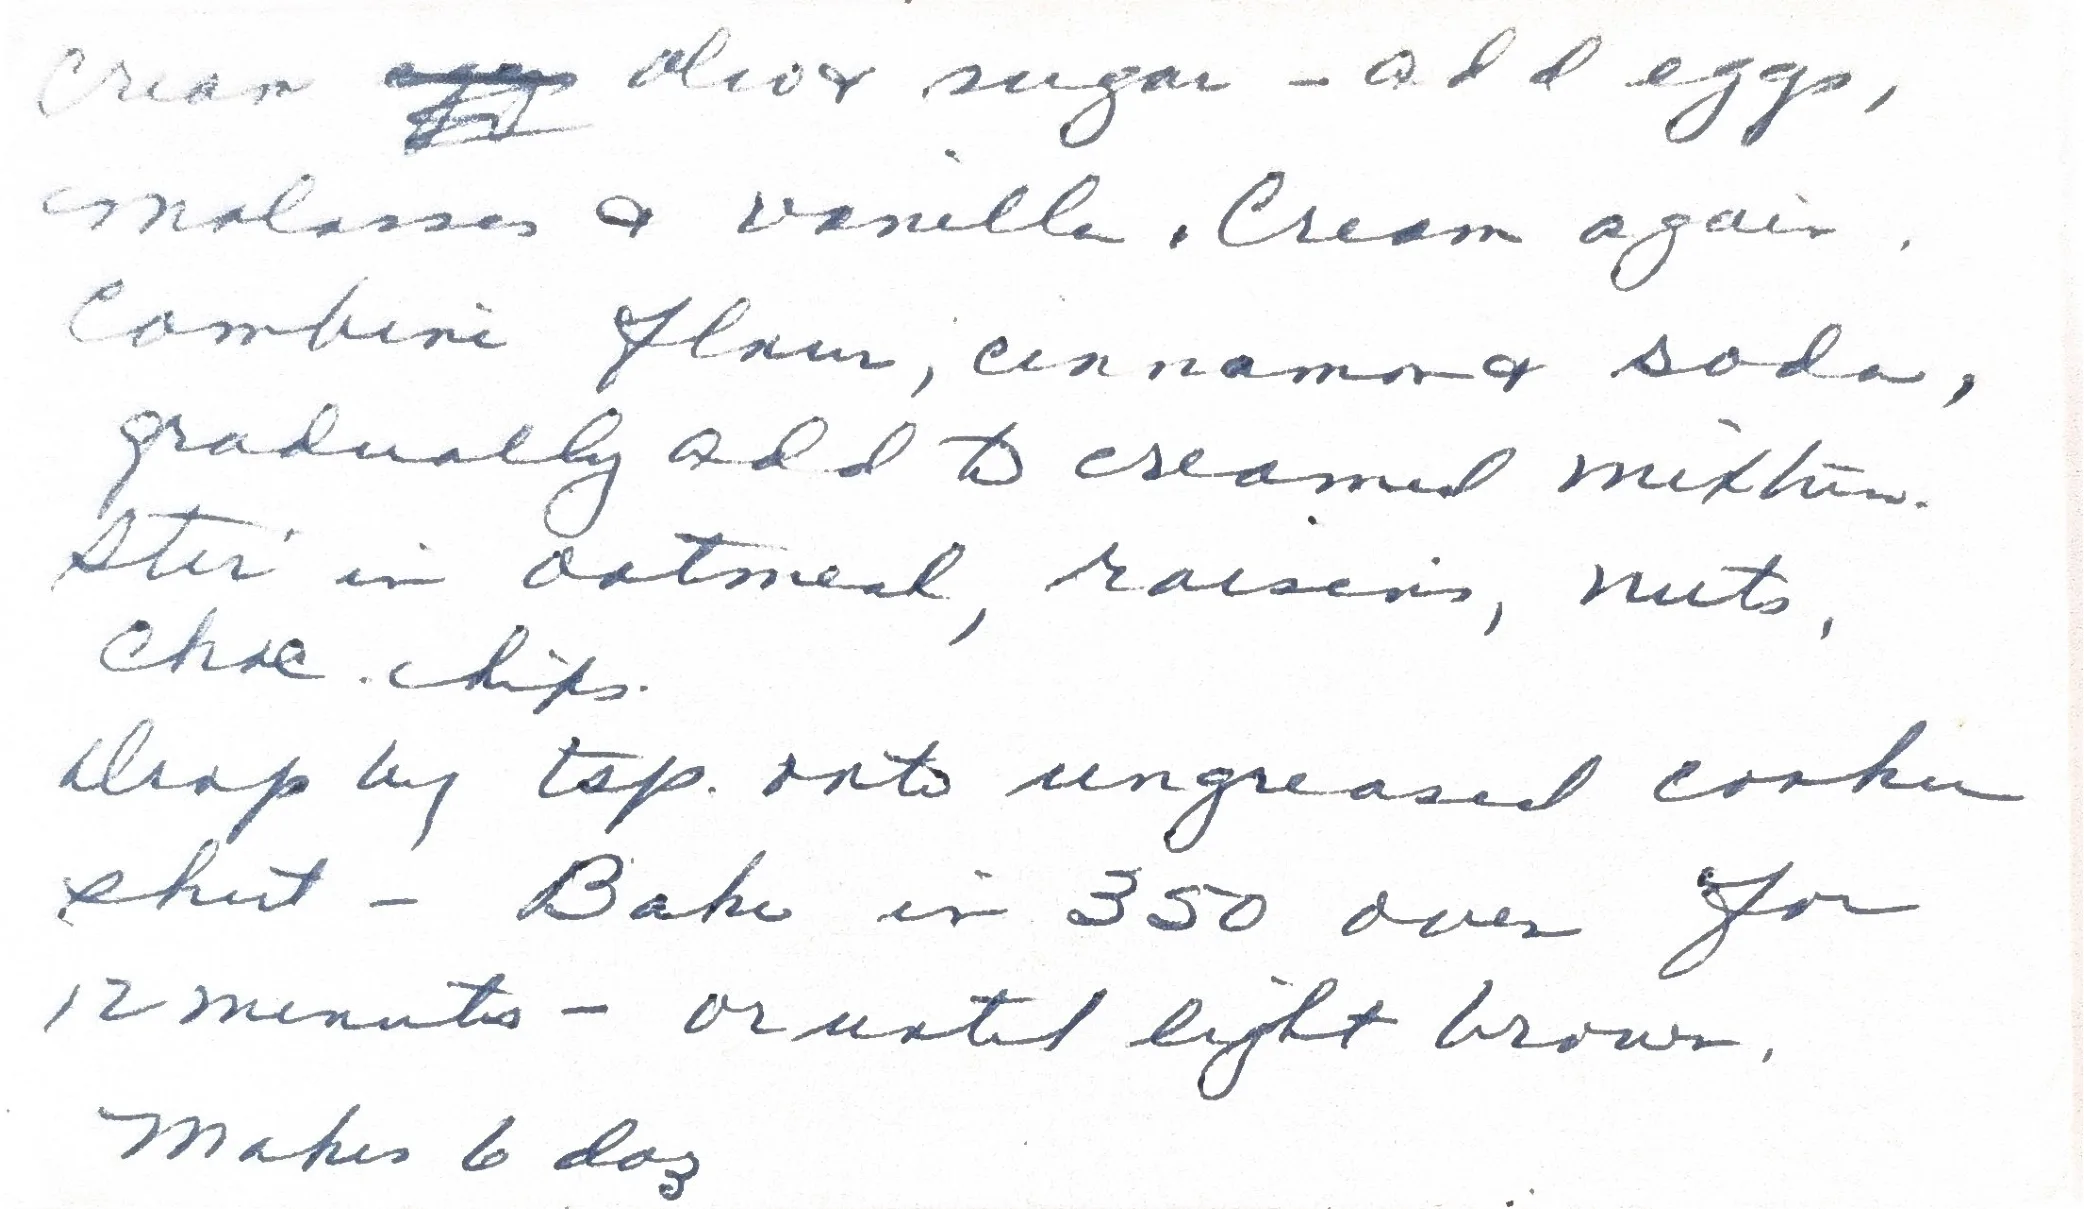 Cream oleo & sugar - add eggs,
molasses & vanilla. Cream again.
Combine flour, cinnamon & soda,
gradually add to creamed mixture.
Stir in oatmeal, raisins, nuts,
choc. chips.
Drop by tsp. onto ungreased cookie
sheet - Bake in 350 oven for
12 minutes - or until light brown.
Makes 6 doz